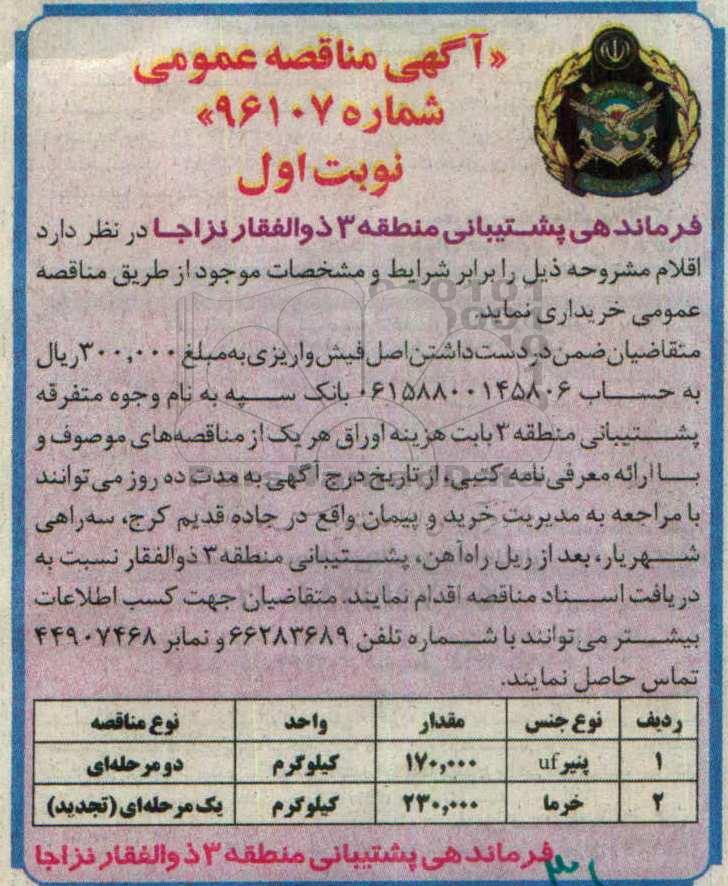 «آگهی مناقصه عمومی
شماره ۹۶۱۰۷»
نوبت اول
فرماندهی پشتیبانی منطقه ۳ ذوالفقار نزاجا در نظر دارد
اقلام مشروحه ذیل را برابر شرایط و مشخصات موجود از طریق مناقصه
عمومی خریداری نماید.
متقاضیان ضمن در دست داشتن اصل فیش واریزی به مبلغ ۳۰۰,۰۰۰ ریال
به حساب ۰۶۱۵۸۸۰۰۱۴۵۸۰۶ بانک سپه به نام وجوه متفرقه
پشتیبانی منطقه ۳ بابت هزینه اوراق هر یک از مناقصه‌های موصوف و
با ارائه معرفی‌نامه کتبی، از تاریخ درج آگهی به مدت ده روز می‌توانند
با مراجعه به مدیریت خرید و پیمان واقع در جاده قدیم کرج، سه‌راهی
شهریار، بعد از ریل راه‌آهن، پشتیبانی منطقه ۳ ذوالفقار نسبت به
دریافت اسناد مناقصه اقدام نمایند. متقاضیان جهت کسب اطلاعات
بیشتر می‌توانند با شماره تلفن ۶۶۲۸۳۶۸۹ و نمابر ۴۴۹۰۷۴۶۸
تماس حاصل نمایند.
ردیف نوع جنس مقدار واحد نوع مناقصه
۱ پنیر uf ۱۷۰,۰۰۰ کیلوگرم دو مرحله‌ای
۲ خرما ۲۳۰,۰۰۰ کیلوگرم یک مرحله‌ای (تجدید)
فرماندهی پشتیبانی منطقه ۳ ذوالفقار نزاجا